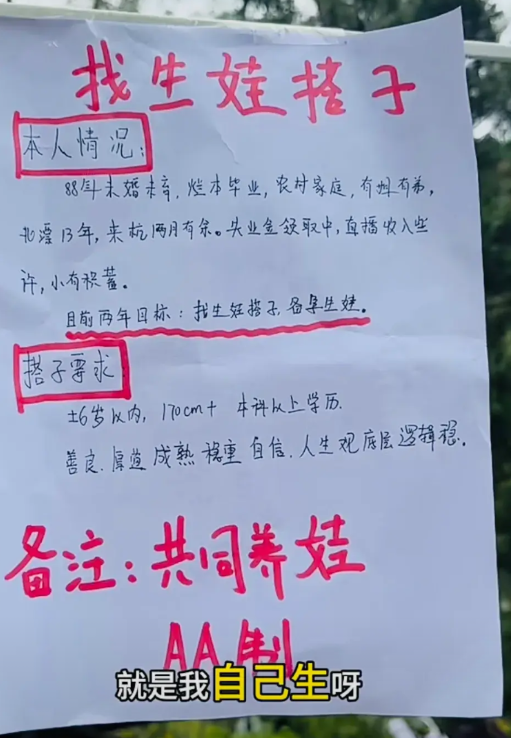 找生娃搭子
本人情况:
88年未婚未育,烂本毕业,农村家庭,有姐有弟,
北漂13年,来杭两月有余。失业金领取中,直播收入些
许,小有积蓄。
目前两年目标:找生娃搭子,备孕生娃。
搭子要求
±6岁以内,170cm+ 本科以上学历.
善良.厚道 成熟 稳重 自信.人生观底层逻辑稳。
备注:共同养娃
AA制
就是我自己生呀